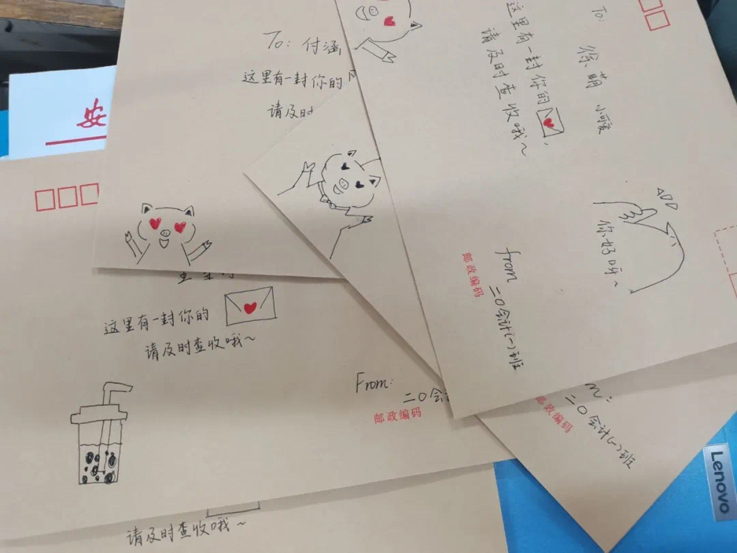 安
To: 付涵
这里有一封你的
请及时
To: 徐萌
这里有一封你的
请及时查收哦~
你好呀~
from
二0会计(一)班
邮政编码
这里有一封你的
请及时查收哦~
From:
二0会
邮政编码
二0会计(一)班
邮政编码
请及时查收哦~
Lenovo